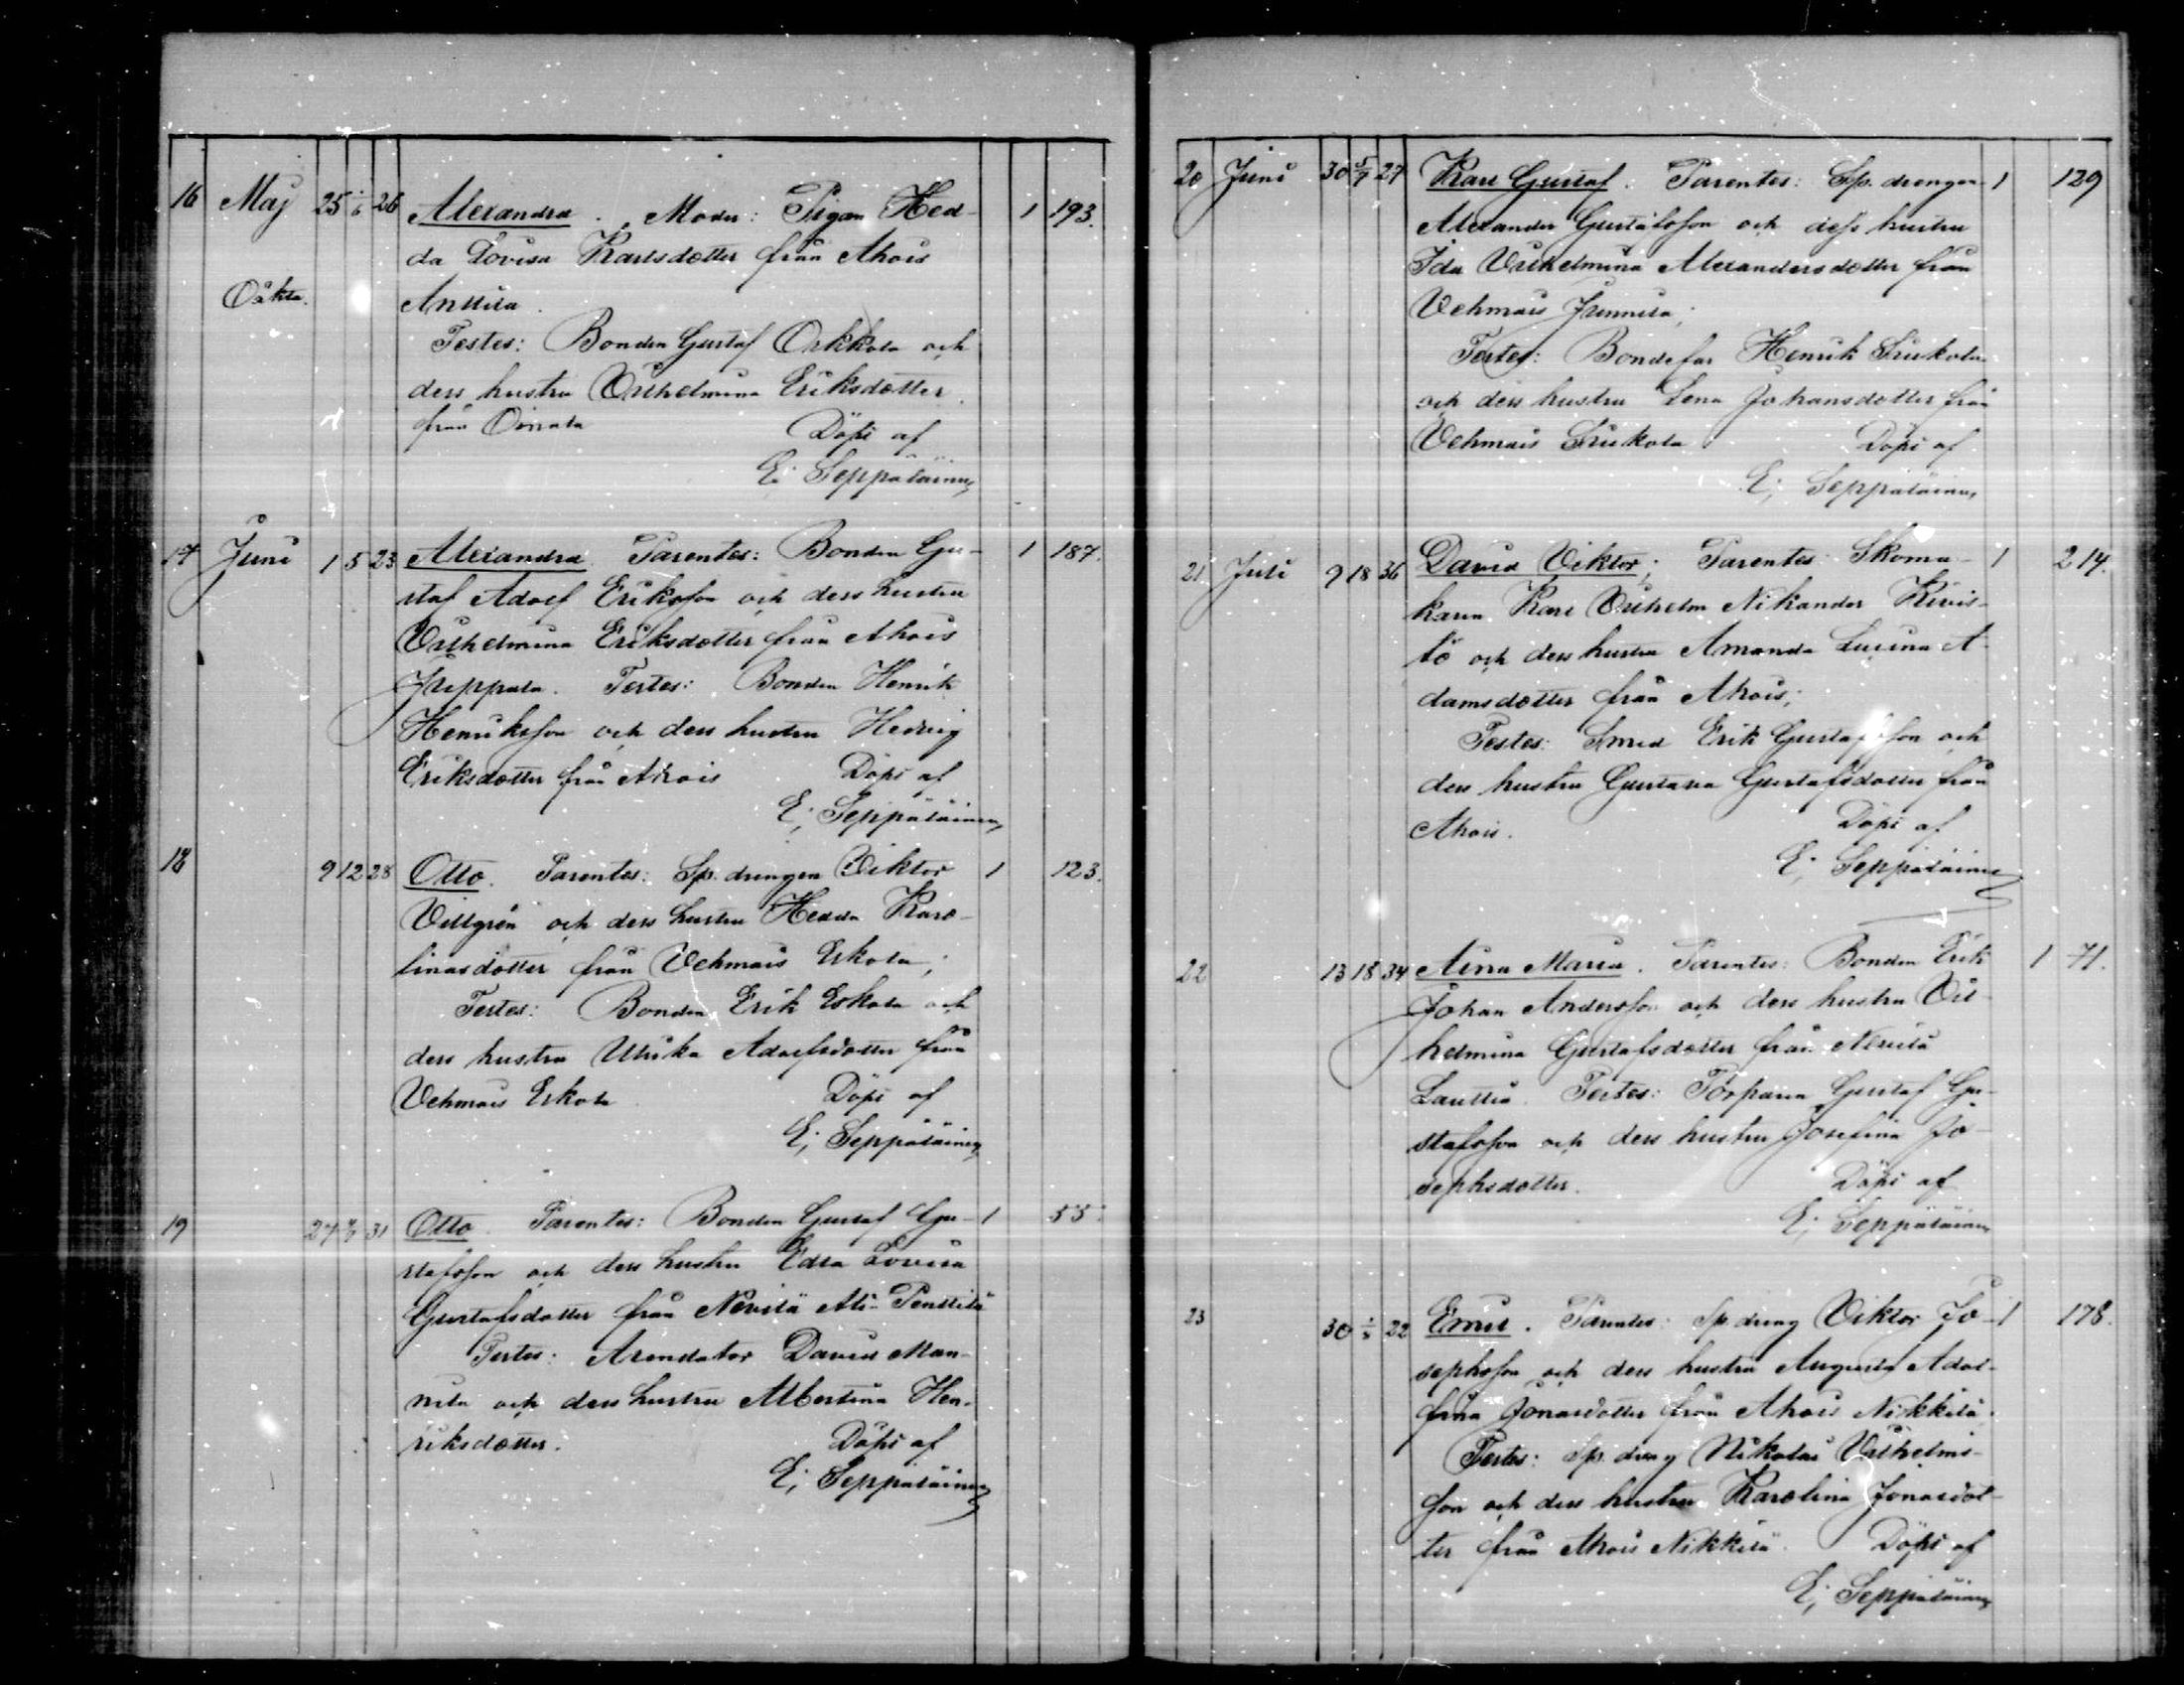 16 Maj 25 1/6 26 Alexandra. Moder: Pigan Hed- 1 193.
da Lovisa Karlsdotter från Ahois
Oäkta. Anttila.
Testes: Bonden Gustaf Orkkola och
dess hustru Vilhelmina Eriksdotter
från Oinala Döpt af
E. Seppäläinen
17 Juni 1 5 23 Alexandra Parentes: Bonden Gu- 1 187.
staf Adolf Eriksson och dess hustru
Vilhelmina Eriksdotter från Ahois
Testes: Bonden Henrik
Henriksson och dess hustru Hedvig
Eriksdotter från Ahois Döpt af
E. Seppäläinen
18 9 12 28 Otto. Parentes: Sp. drengen Viktor 1 123.
Villgrén och dess hustru Hedda Karo-
linasdotter från Vehmais Eskola;
Testes: Bonden Erik Eskola och
dess hustru Ulrika Adolfsdotter från
Vehmais Eskola Döpt af
E. Seppäläinen
19 27 31 Otto Parentes: Bonden Gustaf Gu- 1 55.
stafsson och dess hustru Edla Lovisa
Gustafsdotter från Nevilä Ali-Penttilä
Testes: Arendator David Man-
nila och dess hustru Albertina Hen-
riksdotter. Döpt af
E. Seppäläinen
20 Juni 30 5/7 27 Karl Gustaf. Parentes: Sp. drengen 1 129
Alexander Gustafsson och dess hustru
Ida Vilhelmina Alexandersdotter från
Vehmais Junnila;
Testes: Bondefar Henrik Liukola
och dess hustru Lena Johansdotter från
Vehmais Liukola Döpt af
E. Seppäläinen
21 Juli 9 18 36 David Viktor; Parentes Skoma- 1 214.
karen Karl Vilhelm Nikander Kivis-
tö och dess hustru Amanda Lusina A-
damsdotter från Ahois;
Testes: Smed Erik Gustafsson och
dess hustru Gustava Gustafsdotter från
Ahois. Döpt af
E. Seppäläinen
22 13 18 34 Aina Maria. Parentes: Bonden Erik 1 71.
Johan Andersson och dess hustru Vil-
helmina Gustafsdotter från
Lauttia Testes: Torparen Gustaf Gu-
stafsson och dess hustru Josefina Jo-
sephsdotter. Döpt af
E. Seppäläinen
23 30 22 Emil. Parentes: Sp. dreng Viktor Jo- 1 178.
sephsson och dess hustru Augusta Adol-
fina Jonasdotter från Ahois Nikkilä.
Testes: Sp. dreng Nikolai Vilhelms-
son och dess hustru Karolina Jonasdot-
ter från Ahois Nikkilä. Döpt af
E. Seppäläinen